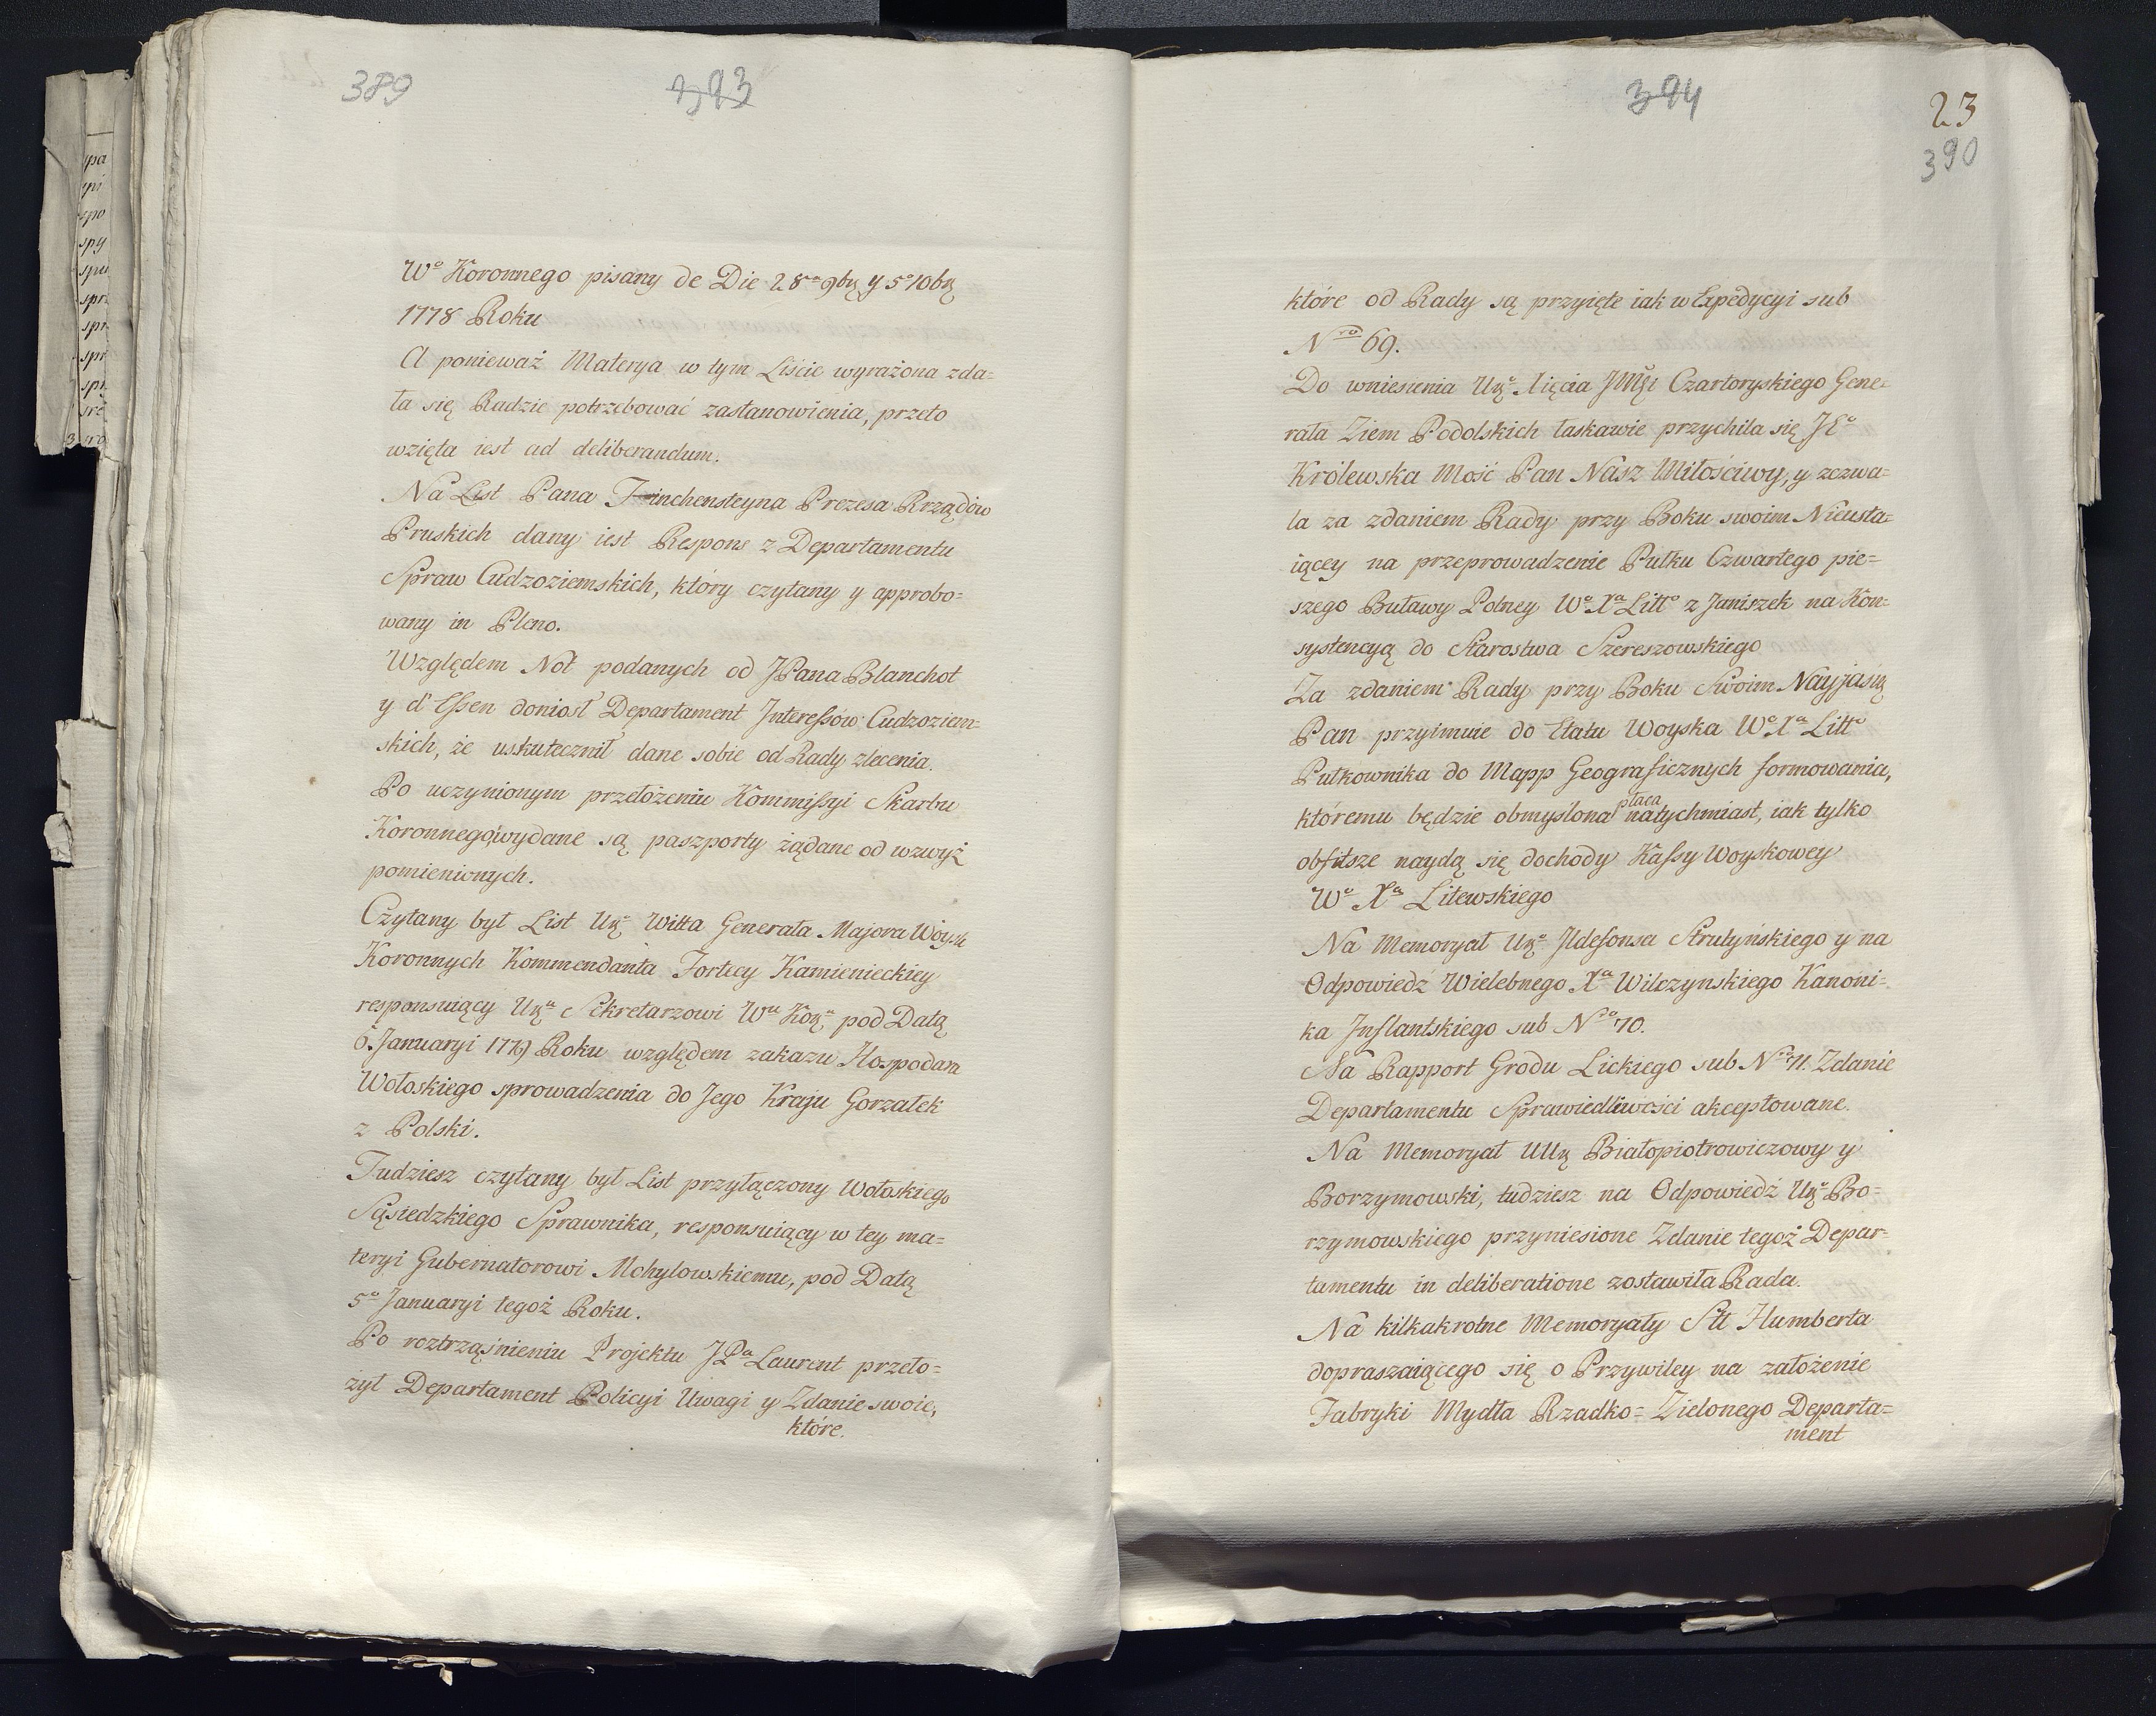 389
393
Wo Koronnego pisany de Die 28va 9brę y 5o 10brę
1778 Roku
A ponieważ Materya w tym Liście wyrażona zda=
ła się Radzie potrzebować zastanowienia, przeto
wzięta iest ad deliberandum.
Na List Pana Finchensteyna Prezesa Rządów
Pruskich dany iest Respons z Departamentu
Spraw Cudzoziemskich, który czytany y approbo=
wany in Pleno.
Względem Not podanych od JPana Blanchot
y d'Essen doniosł Departament Interessów Cudzoziem=
skich, że uskutecznił dane sobie od Rady zlecenia.
Po uczynionym przełożeniu Kommissyi Skarbu
Koronnego, wydane są paszporty żądane od wzwyż
pomienionych.
Czytany był List Urgo Witta Generała Majora Woysk
Koronnych Kommendanta Fortecy Kamienieckiey
responsuiący Urmu Sekretarzowi Wmu Korm, pod Datą
6. Januaryi 1779 Roku względem zakazu Hospodara
Wołoskiego sprowadzenia do Jego Kraju Gorzałek
z Polski.
Tudziesz czytany był List przyłączony Wołoskiego
Sąsiedzkiego Sprawnika, responsuiący w tey ma=
teryi Gubernatorowi Mohylowskiemu, pod Datą
5o Januaryi tegoż Roku.
Po roztrząśnieniu Projektu JPa Laurent przeło=
żył Departament Policyi Uwagi y Zdanie swoie,
które.
394
23
390
które od Rady są przyięte iak w Expedycyi sub
Nro 69.
Do wniesienia Urgo Xięcia JMci Czartoryskiego Gene=
rała Ziem Podolskich łaskawie przychila się JEo
Królewska Mość Pan Nasz Miłościwy, y zezwa=
la za zdaniem Rady przy Boku swoim Nieusta=
iącey na przeprowadzenie Pułku Czwartego pie=
szego Buławy Polney Wo Xa Litto z Janiszek na Kon=
systencyą do Starostwa Szereszowskiego
Za zdaniem Rady przy Boku Swoim Nayjaśnę
Pan przyimuie do Etatu Woyska Wo Xa Litto
Pułkownika do Mapp Geograficznych formowania,
któremu będzie obmyślona płaca natychmiast, iak tylko
obfitsze naydą się dochody Kassy Woyskowey
Wo Xa Litewskiego
Na Memoryał Urgo Ildefonsa Strutyńskiego y na
Odpowiedź Wielebnego Xa Wilczynskiego Kanoni=
ka Inflantskiego sub Nro 70.
Na Rapport Grodu Lickiego sub Nro 71. Zdanie
Departamentu Sprawiedliwości akceptowane.
Na Memoryał UUrę Białopiotrowiczowy y
Borzymowski, tudziesz na Odpowiedź Urgo Bo=
rzymowskiego przyniesione Zdanie tegoż Depar=
tamentu in deliberatione zostawiła Rada.
Na kilkakrotne Memoryały Stt Humberta
dopraszaiącego się o Przywiley na założenie
Fabryki Mydła Rzadko= Zielonego Departa=
ment